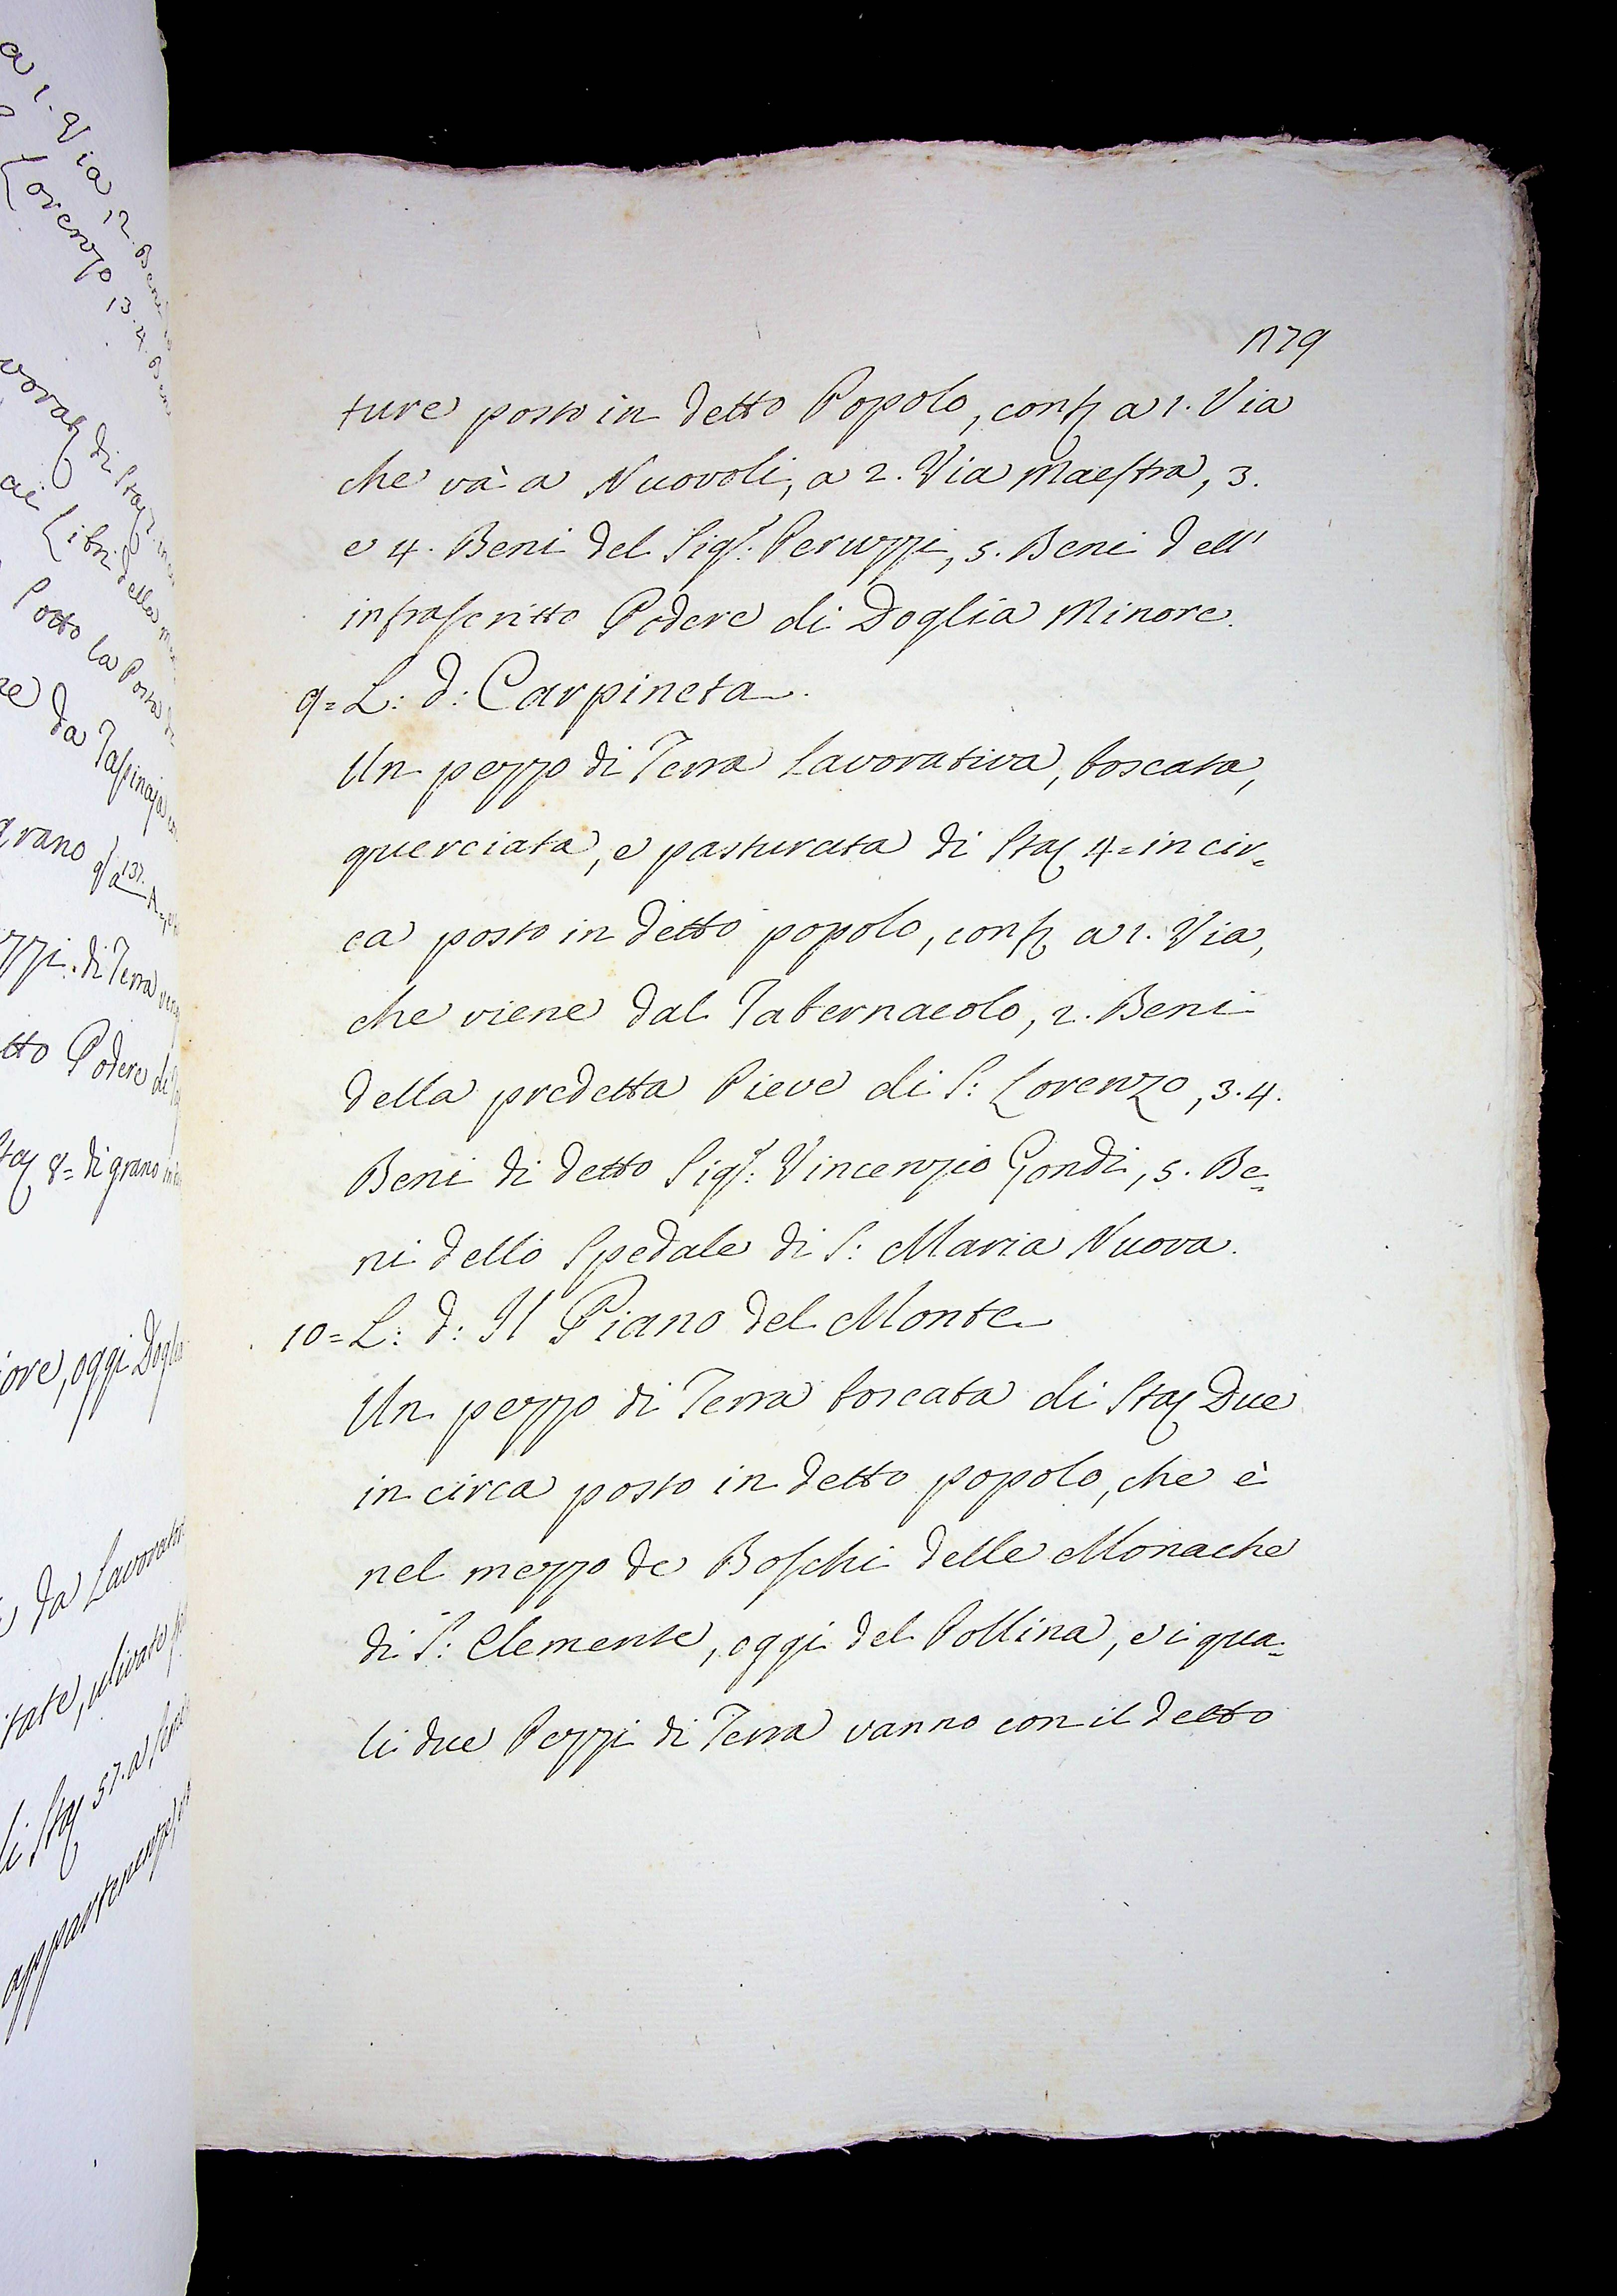 a 1. Via 12. Beni
Lorenzo 13. 4. Ben
di Sta
ai Libri della
sotto la Porta
da Taspinaja
grano
zzi di Terra
tto Podere di
Sta 8= di grano in
iore, oggi Doglia
da Lavorator
itate, ulivate
di Sta 57. a
appartenenze,
1179
ture posto in detto Popolo, conf. a 1. Via
che và a Nuovoli, a 2. Via Maestra, 3.
e 4. Beni del Sigr. Peruzzi, 5. Beni dell'
infrascritto Podere di Doglia Minore.
9= L: d: Carpineta.
Un pezzo di Terra Lavorativa, boscata,
querciata, e pasturata di Sta 4= in cir=
ca posto in detto popolo, conf. a 1. Via,
che viene dal Tabernacolo, 2. Beni
della predetta Pieve di S: Lorenzo, 3. 4.
Beni di detto Sigr: Vincenzio Gondi, 5. Be=
ni dello Spedale di S: Maria Nuova.
10= L: d: Il Piano del Monte
Un pezzo di Terra boscata di Sta Due
in circa posto in detto popolo, che è
nel mezzo de Boschi delle Monache
di S: Clemente, oggi del Pollina, e i qua=
li due Pezzi di Terra vanno con il detto